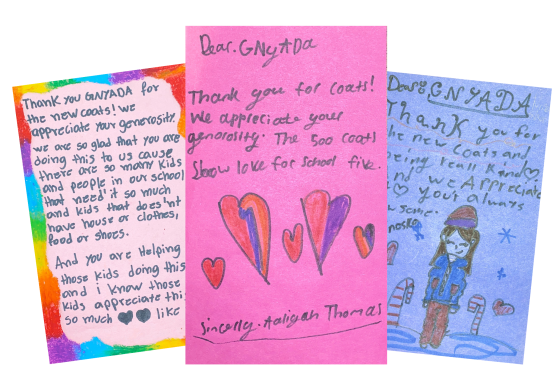 Thank you GNYADA for
the new coats! We
appreciate your generosity
we are so glad that you are
doing this to us cause
there are so many kids
and people in our school
that need it so much
and kids that does'nt
have house or clothes,
food or shoes.
And you are Helping
those kids doing this
and i know those
kids appreciate this
so much like
Dear. GNyADA
Thank you for coats!
We appreciate your
generosity. The 500 coats
Show love for school five.
Sincelly. Aaliyah Thomas
Dear GNYADA
Thank you for
the new coats and
being really kand
and we Appreciate
you's always